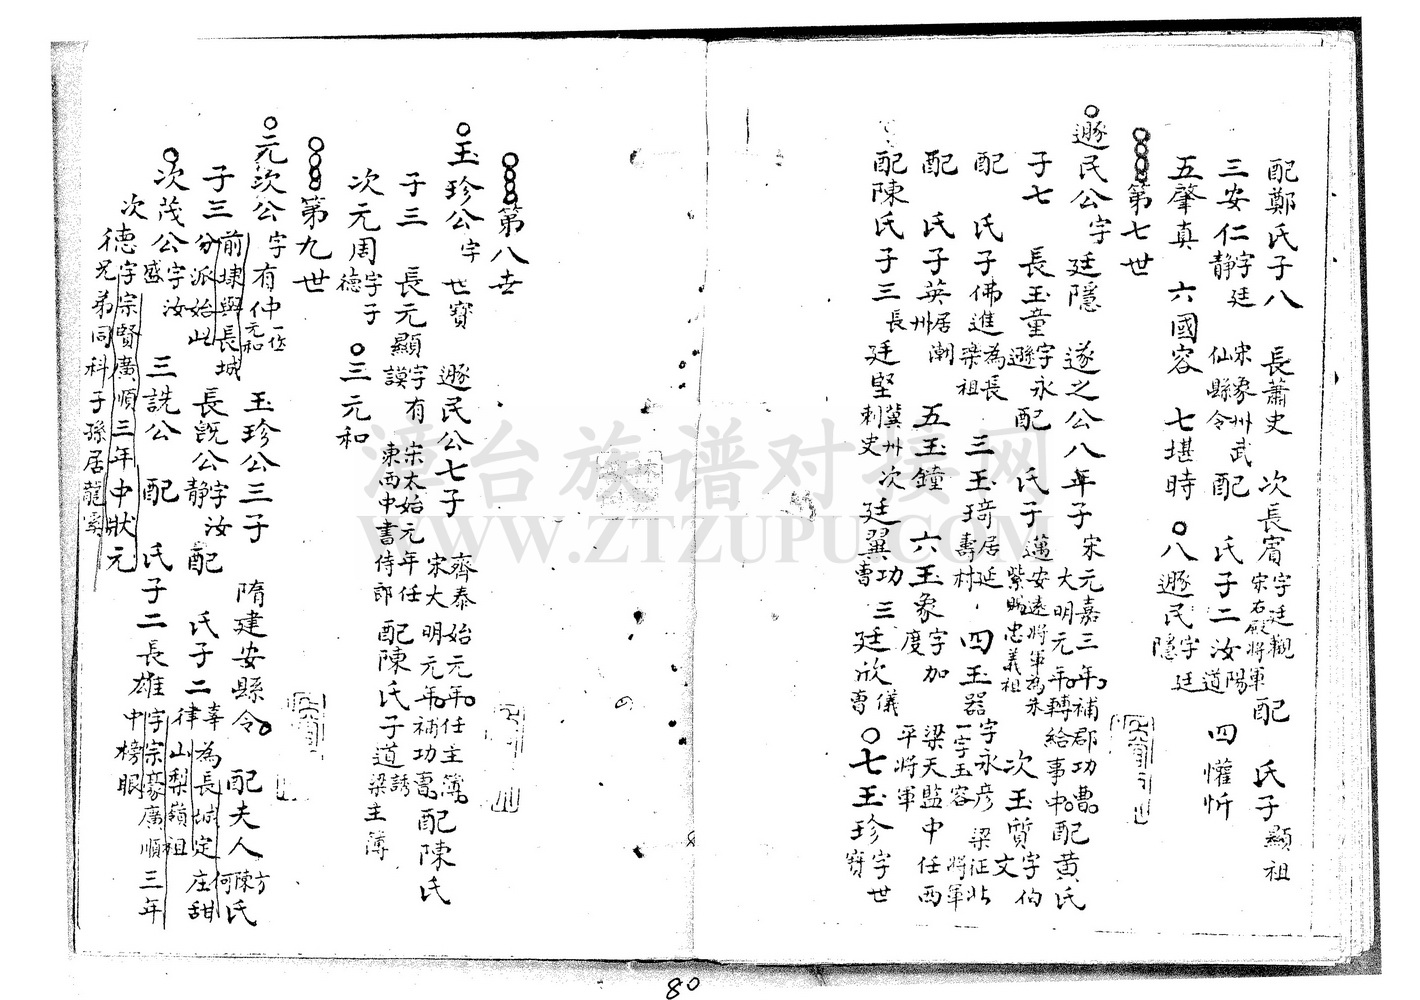 配鄭氏子八 長蕭史 次長賓字廷觀宋右殿將軍配 氏子顯祖
三安仁字廷静宋象州武仙縣令配 氏子二汝陽道 四懽忻
五肇真 六國容 七堪時 八遯民字廷隱
第七世
遯民公字廷隱 遂之公八年子宋元嘉三年補郡功曹大明元年轉給事中配黃氏
子七 長玉童字永遜配 氏子邁安遠將軍為朱紫畈忠義祖 次玉質字伯文
配 氏子佛進為長梁祖 三玉琦居延壽村 四玉器字永彦一字玉容梁征北將軍
配 氏子英居潮州 五玉鐘 六玉象字加度梁天監中任西平將軍
配陳氏子三長廷堅冀州刺史次廷翼功曹三廷欣儀曹 七玉珍字世寶
第八世
玉珍公字世寶 遯民公七子齊泰始元年任主簿宋大明元年補功曹配陳氏
子三 長元顯字有謨宋太始元年任東西中書侍郎配陳氏子道誘梁主簿
次元周字子德 三元和
第九世
元次公字有仲一作元和 玉珍公三子 隋建安縣令 配夫人方陳何氏
子三前埭與長城分派始此 長旣公字汝静配 氏子二辜為長城定庄甜律山梨嶺祖
次茂公字汝盛 三詵公 配 氏子二長雄字宗豪廣順三年中榜眼
次德字宗賢廣順三年中狀元
兄弟同科子孫居龍
漳台族谱对接网
WWW.ZTZUPU.COM
80